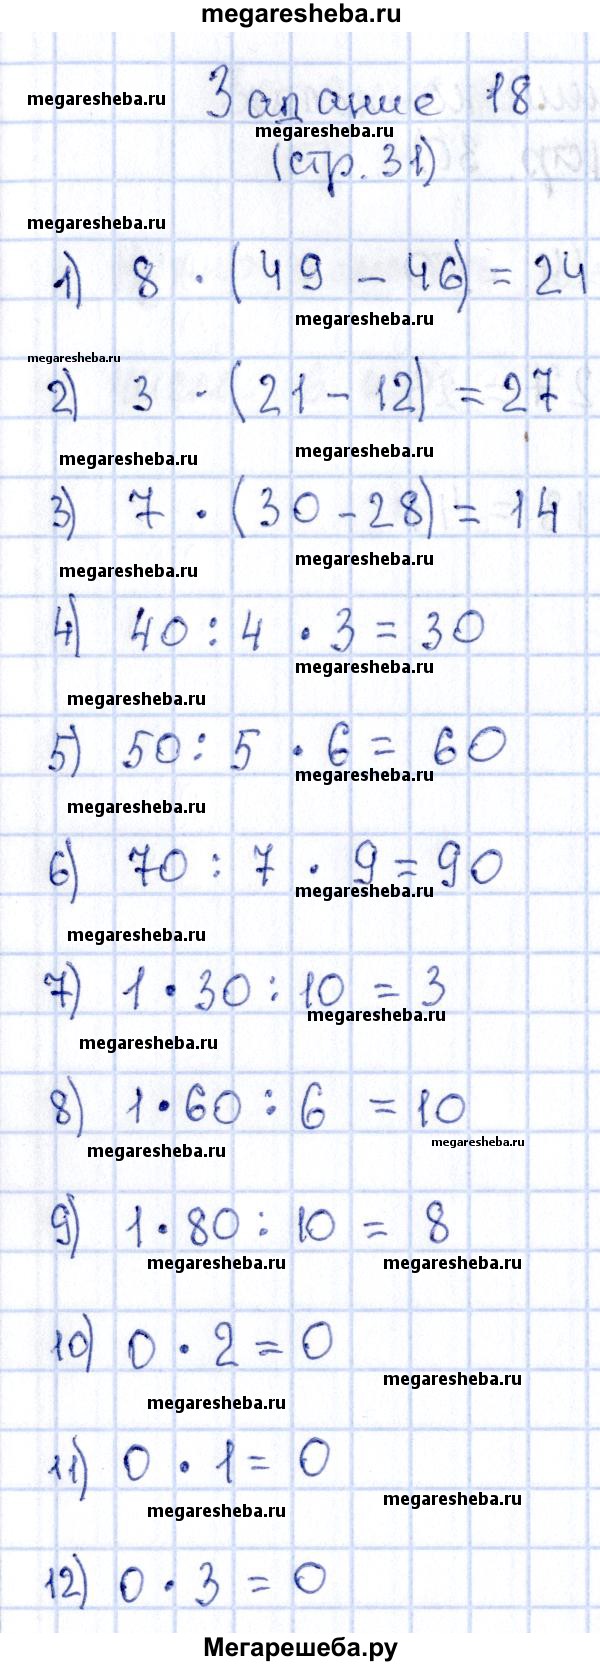 megaresheba.ru
Задание 18
megaresheba.ru
megaresheba.ru
(стр. 31)
megaresheba.ru
1) 8 · (49 - 46) = 24
megaresheba.ru
megaresheba.ru
2) 3 · (21 - 12) = 27
megaresheba.ru
megaresheba.ru
3) 7 · (30 - 28) = 14
megaresheba.ru
megaresheba.ru
4) 40 : 4 · 3 = 30
megaresheba.ru
megaresheba.ru
5) 50 : 5 · 6 = 60
megaresheba.ru
megaresheba.ru
6) 70 : 7 · 9 = 90
megaresheba.ru
megaresheba.ru
7) 1 · 30 : 10 = 3
megaresheba.ru
megaresheba.ru
8) 1 · 60 : 6 = 10
megaresheba.ru
megaresheba.ru
9) 1 · 80 : 10 = 8
megaresheba.ru megaresheba.ru
10) 0 · 2 = 0
megaresheba.ru
megaresheba.ru
11) 0 · 1 = 0
megaresheba.ru
megaresheba.ru
12) 0 · 3 = 0
Мегарешеба.ру